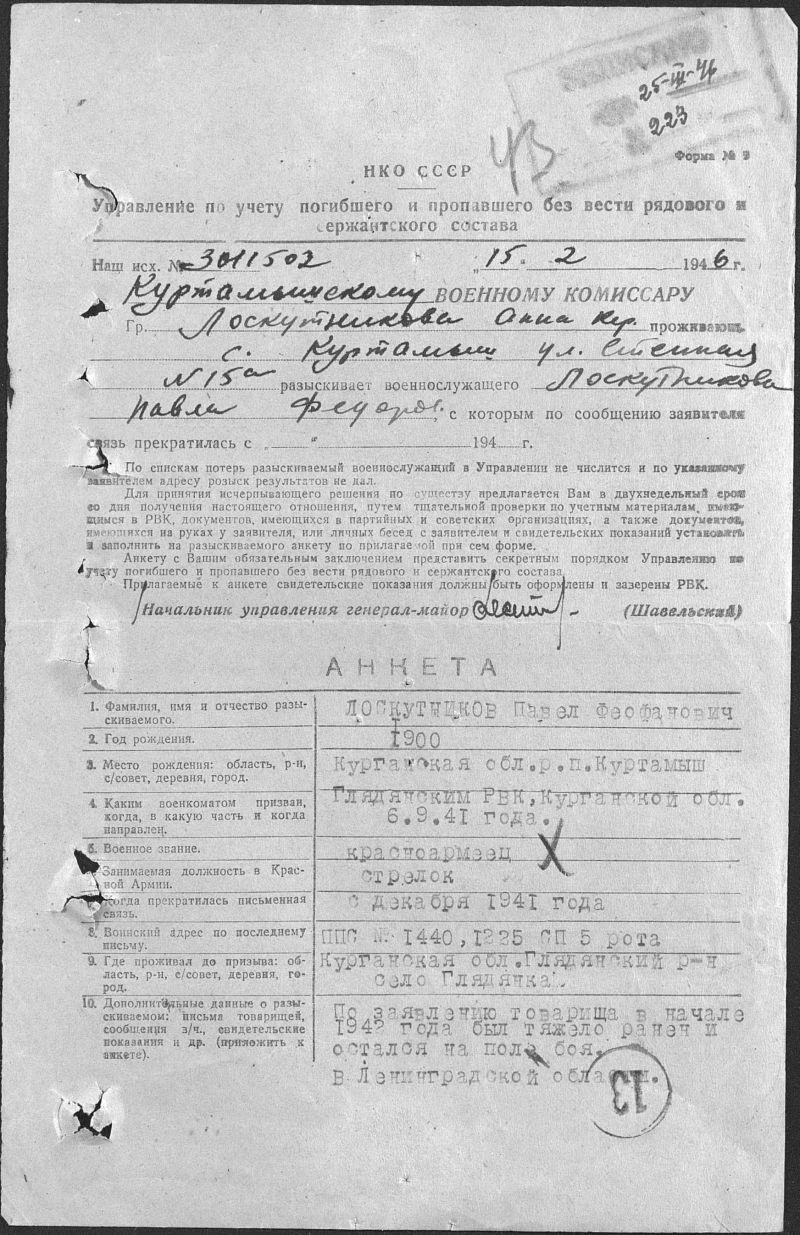 25-III-46
223
ЧВ
Форма № 9
НКО СССР
Управление по учету погибшего и пропавшего без вести рядового и
сержантского состава
Наш исх. № 3011502 „15. 2 1946 г.
Куртамышскому ВОЕННОМУ КОМИССАРУ
Гр. Лоскутникова Анна проживающ.
с. Куртамыш ул. Степная
N 15а разыскивает военнослужащего Лоскутникова
Павла Федоров. с которым по сообщению заявителя
связь прекратилась с „ “ 194 г.
По спискам потерь разыскиваемый военнослужащий в Управлении не числится и по указанному
заявителем адресу розыск результатов не дал.
Для принятия исчерпывающего решения по существу предлагается Вам в двухнедельный срок
со дня получения настоящего отношения, путем тщательной проверки по учетным материалам, имею-
щимся в РВК, документов, имеющихся в партийных и советских организациях, а также документов,
имеющихся на руках у заявителя, или личных бесед с заявителем и свидетельских показаний установить
и заполнить на разыскиваемого анкету по прилагаемой при сем форме.
Анкету с Вашим обязательным заключением представить секретным порядком Управлению по
учету погибшего и пропавшего без вести рядового и сержантского состава.
Прилагаемые к анкете свидетельские показания должны быть оформлены и заверены РВК.
Начальник управления генерал-майор (Шавельский)
АНКЕТА
1. Фамилия, имя и отчество разы-
скиваемого.
ЛОСКУТНИКОВ Павел Феофанович
2. Год рождения.
1900
3. Место рождения: область, р-н,
с/совет, деревня, город.
Курганская обл.р.п.Куртамыш
4. Каким военкоматом призван,
когда, в какую часть и когда
направлен.
Глядянским РВК,Курганской обл.
6.9.41 года.
5. Военное звание.
красноармеец
Занимаемая должность в Крас-
ной Армии.
стрелок
Когда прекратилась письменная
связь.
с декабря 1941 года
8. Воинский адрес по последнему
письму.
ППС № 1440,1225 СП 5 рота
9. Где проживал до призыва: об-
ласть, р-н, с/совет, деревня, го-
род.
Курганская обл.Глядянский р-н
село Глядянка.
10. Дополнительные данные о разы-
скиваемом: письма товарищей,
сообщения в/ч., свидетельские
показания и др. (приложить к
анкете).
По заявлению товарища в начале
1942 года был тяжело ранен и
остался на поле боя.
в Ленинградской области.
13